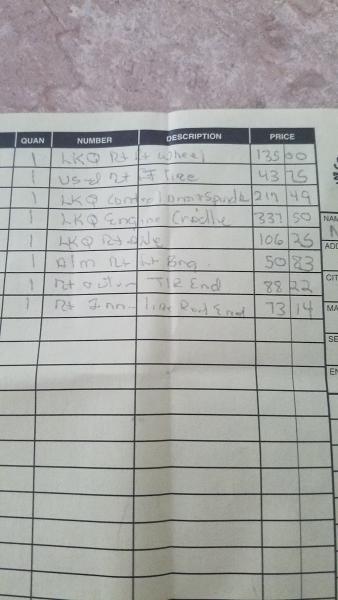 QUAN NUMBER DESCRIPTION PRICE
1 LKQ Rt Ft Wheel 135 00
1 Used Rt Ft Tire 43 75
1 LKQ Control 49
1 LKQ Engine Cradle 337 50
1 LKQ Rt Axle 106 25
1 Alm Rt Ft Brg. 50 83
1 Rt outer TIR End 88 22
1 Rt Inn Tire Rod End 73 14
NAM
ADD
CIT
MA
SE
EN